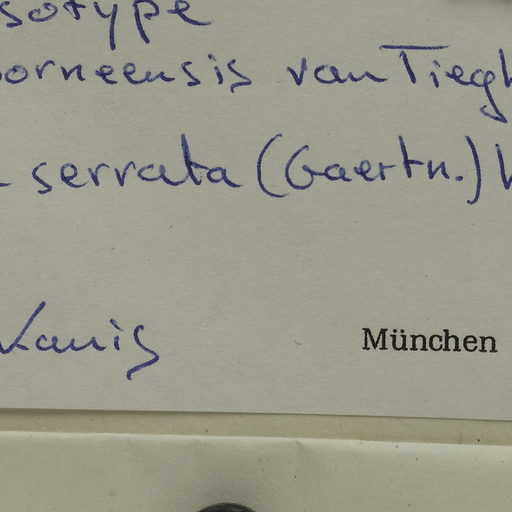 sotype
orneensis van Tiegh
serrata (Gaertn.)
Kanis München